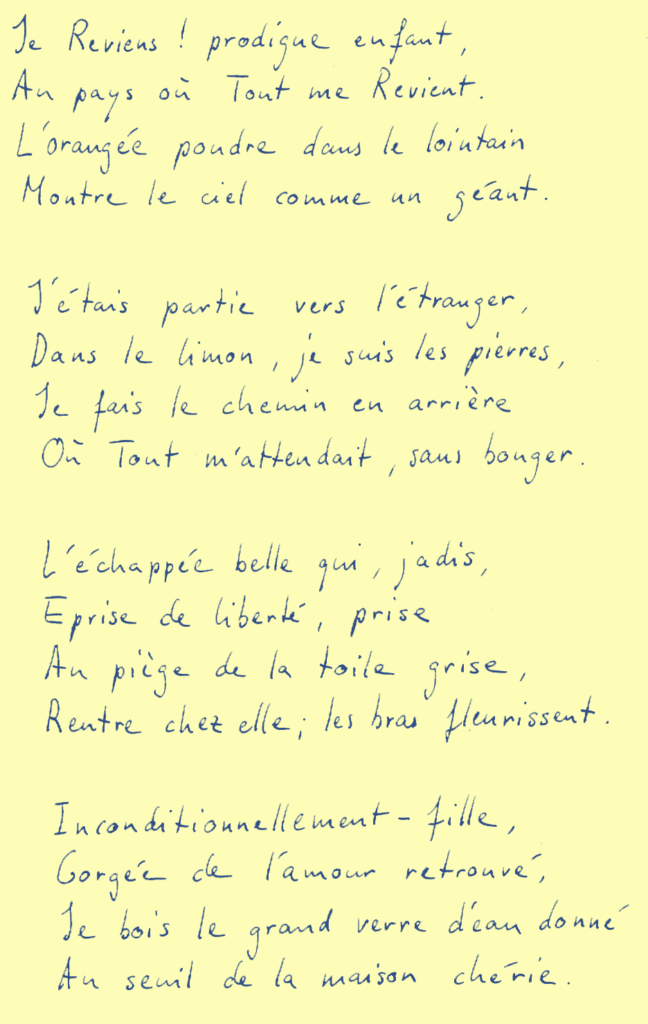 Je Reviens ! prodigue enfant,
Au pays où Tout me Revient.
L'orangée poudre dans le lointain
Montre le ciel comme un géant.
J'étais partie vers l'étranger,
Dans le limon, je suis les pierres,
Je fais le chemin en arrière
Où Tout m'attendait, sans bouger.
L'échappée belle qui, jadis,
Eprise de liberté, prise
Au piège de la toile grise,
Rentre chez elle; les bras fleurissent.
Inconditionnellement-fille,
Gorgée de l'amour retrouvé,
Je bois le grand verre d'eau donné
Au seuil de la maison chérie.